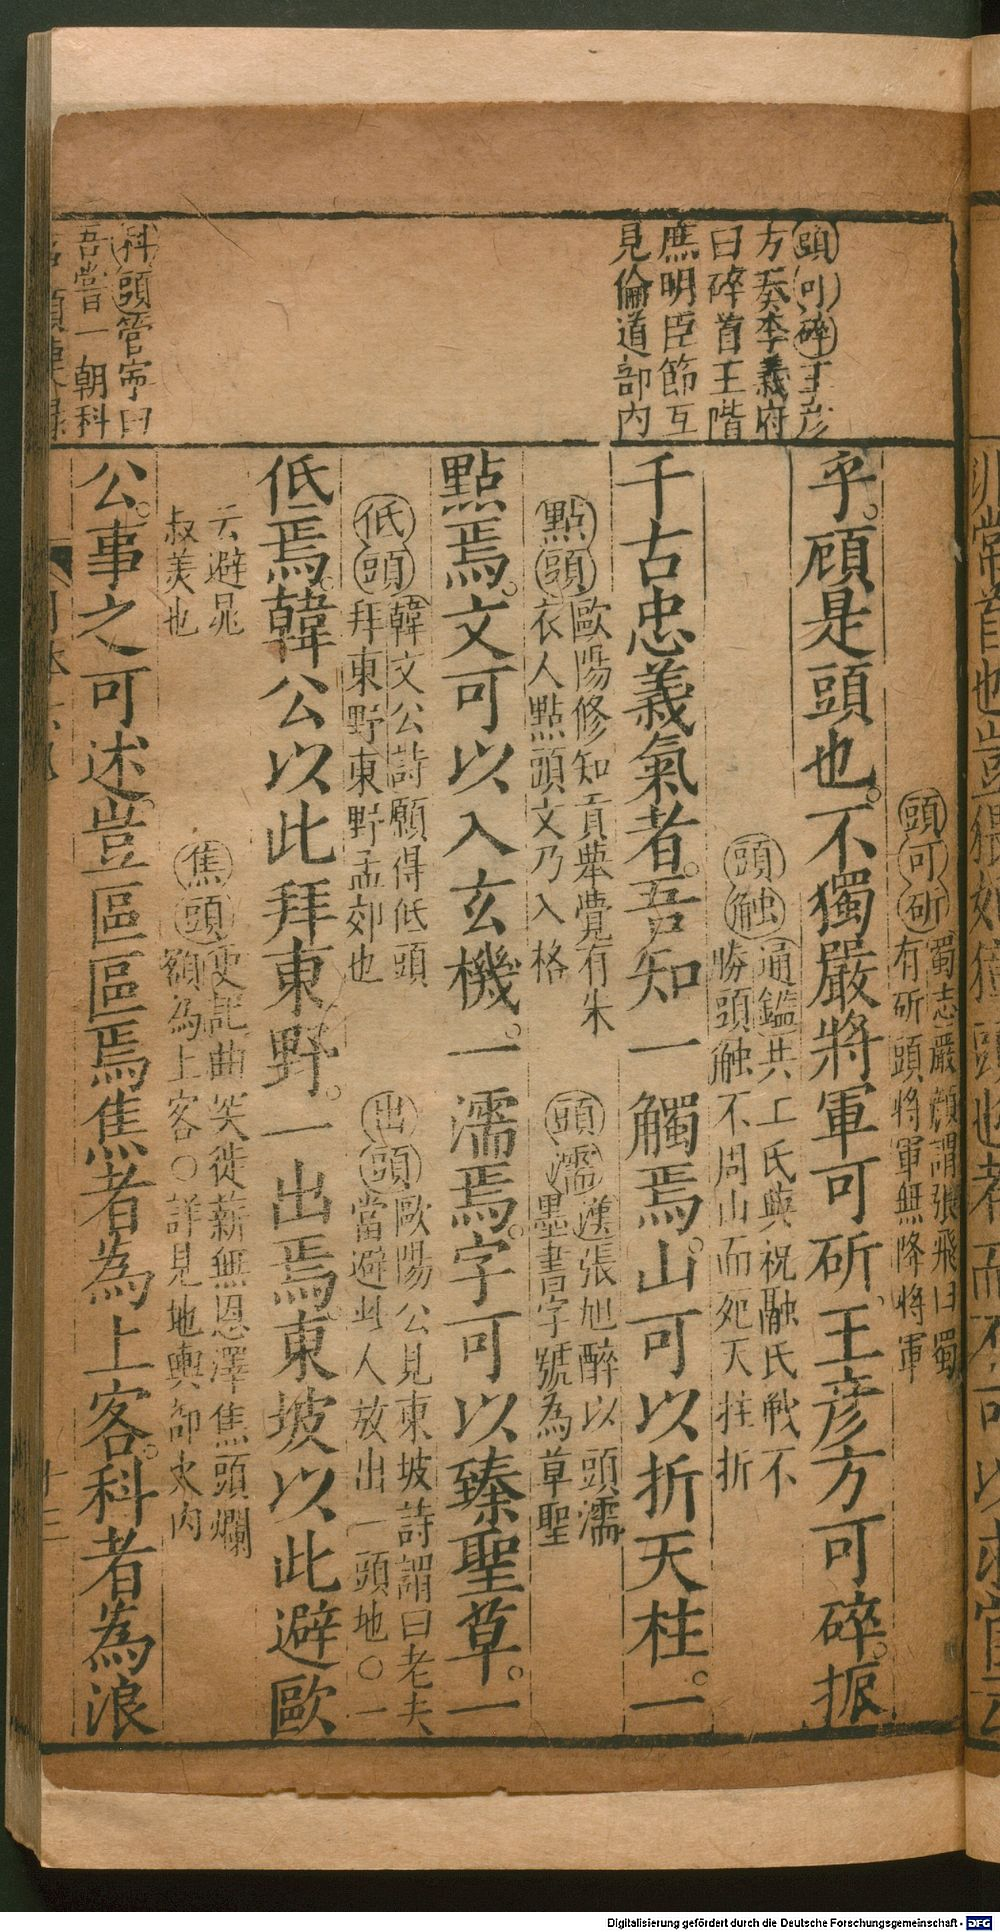 頭可碎王彦
方奏李義府
曰碎首王階
庶明臣節互
見倫道部内
科頭管寧曰
吾嘗一朝科
頭可斫蜀志嚴顔謂張飛曰蜀
有斫頭將軍無降将軍
乎。頋是頭也。不獨嚴將軍可斫。王彦方可碎。振
頭触通鑑共工氏與祝融氏戦不
勝頭触不周山而死天柱折
千古忠義氣者。吾知一觸焉。山可以折天柱。一
點頭歐陽修知貢舉覺有朱
衣人點頭文乃入格
頭濡漢張旭醉以頭濡
墨書字號為草聖
點焉。文可以入玄機。一濡焉。字可以臻聖草。一
低頭韓文公詩願得低頭
拜東野東野孟郊也
出頭歐陽公見東坡詩謂曰老夫
當避此人放出一頭地〇一
低焉。韓公以此拜東野。一出焉。東坡以此避歐
云避晁
叔美也
焦頭史記曲突徙薪無恩澤焦頭爛
額為上客〇詳見地輿部火内
公。事之可述。豈區區焉焦者為上客。科者為浪
十三
Digitalisierung gefördert durch die Deutsche Forschungsgemeinschaft - DFG